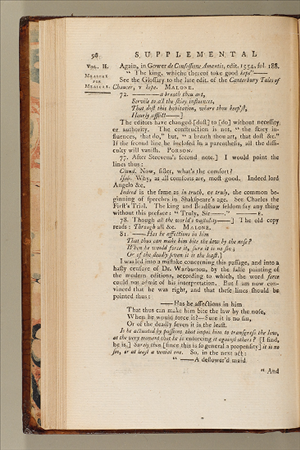 58 SUPPLEMENTAL
Vol. II.
Measure
for
Measure.
Again, in Gower de Confessione Amantis, edit. 1554, fol. 188.
" The king, whiche thereof take good kepe"—
See the Glossary to the late edit. of the Canterbury Tales of
Chaucer, v kepe. Malone.
72. ———a breath thou art,
Servile to all the skiey influences,
That dost this habitation, where thou keep'st,
Hourly afflict—]
The editors have changed [dost] to [do] without necessity
or authority. The construction is not, " the skiey influences,
that do," but, " a breath thou art, that dost &c."
If the second line be inclosed in a parenthesis, all the difficulty
will vanish. Porson.
77. After Steevens's second note.] I would point the
lines thus:
Claud. Now, sister, what's the comfort?
Isab. Why, as all comforts are, most good. Indeed lord
Angelo &c.
Indeed is the same as in truth, or truly, the common beginning
of speeches in Shakspeare's age. See Charles the
First's Trial. The king and Bradshaw seldom say any thing
without this preface: " Truly, Sir—."
78. Though all the world's vastidity—] The old copy
reads: Through all &c. Malone.
81. —Has he affections in him
That thus can make him bite the law by the nose?
When he would force it, sure it is no sin;
Or of the deadly seven it is the least.]
I was led into a mistake concerning this passage, and into a
hasty censure of Dr. Warburton, by the false pointing of
the modern editions, according to which, the word force
could not admit of his interpretation. But I am now convinced
that he was right, and that these lines should be
pointed thus:
—Has he affections in him
That thus can make him bite the law by the nose,
When he would force it?—Sure it is no sin,
Or of the deadly seven it is the least.
Is he actuated by passions that impel him to transgress the law,
at the very moment that he is enforcing it against others? [I find,
he is.] Surely then [since this is so general a propensity] it is no
sin, or at least a venial one. So, in the next act:
" —A deflower'd maid
" And